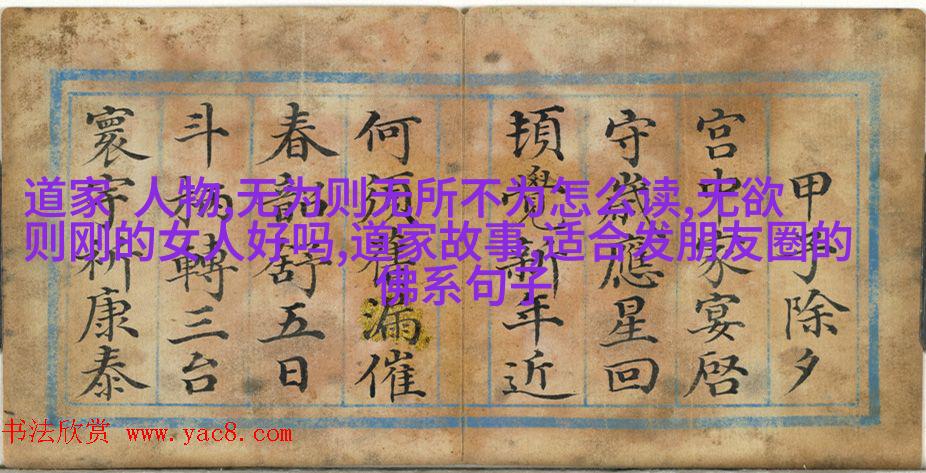 甲子除夕
宫中家宴啓
守歲應星回
頃覺新年近
何須舊漏催
春韶舒五日
斗柄轉三台
寰宇祈康泰
道家 人物,无为则无所不为怎么读,无欲
则刚的女人好吗,道家故事,适合发朋友圈的
佛系句子
书法欣赏 www.yac8.com